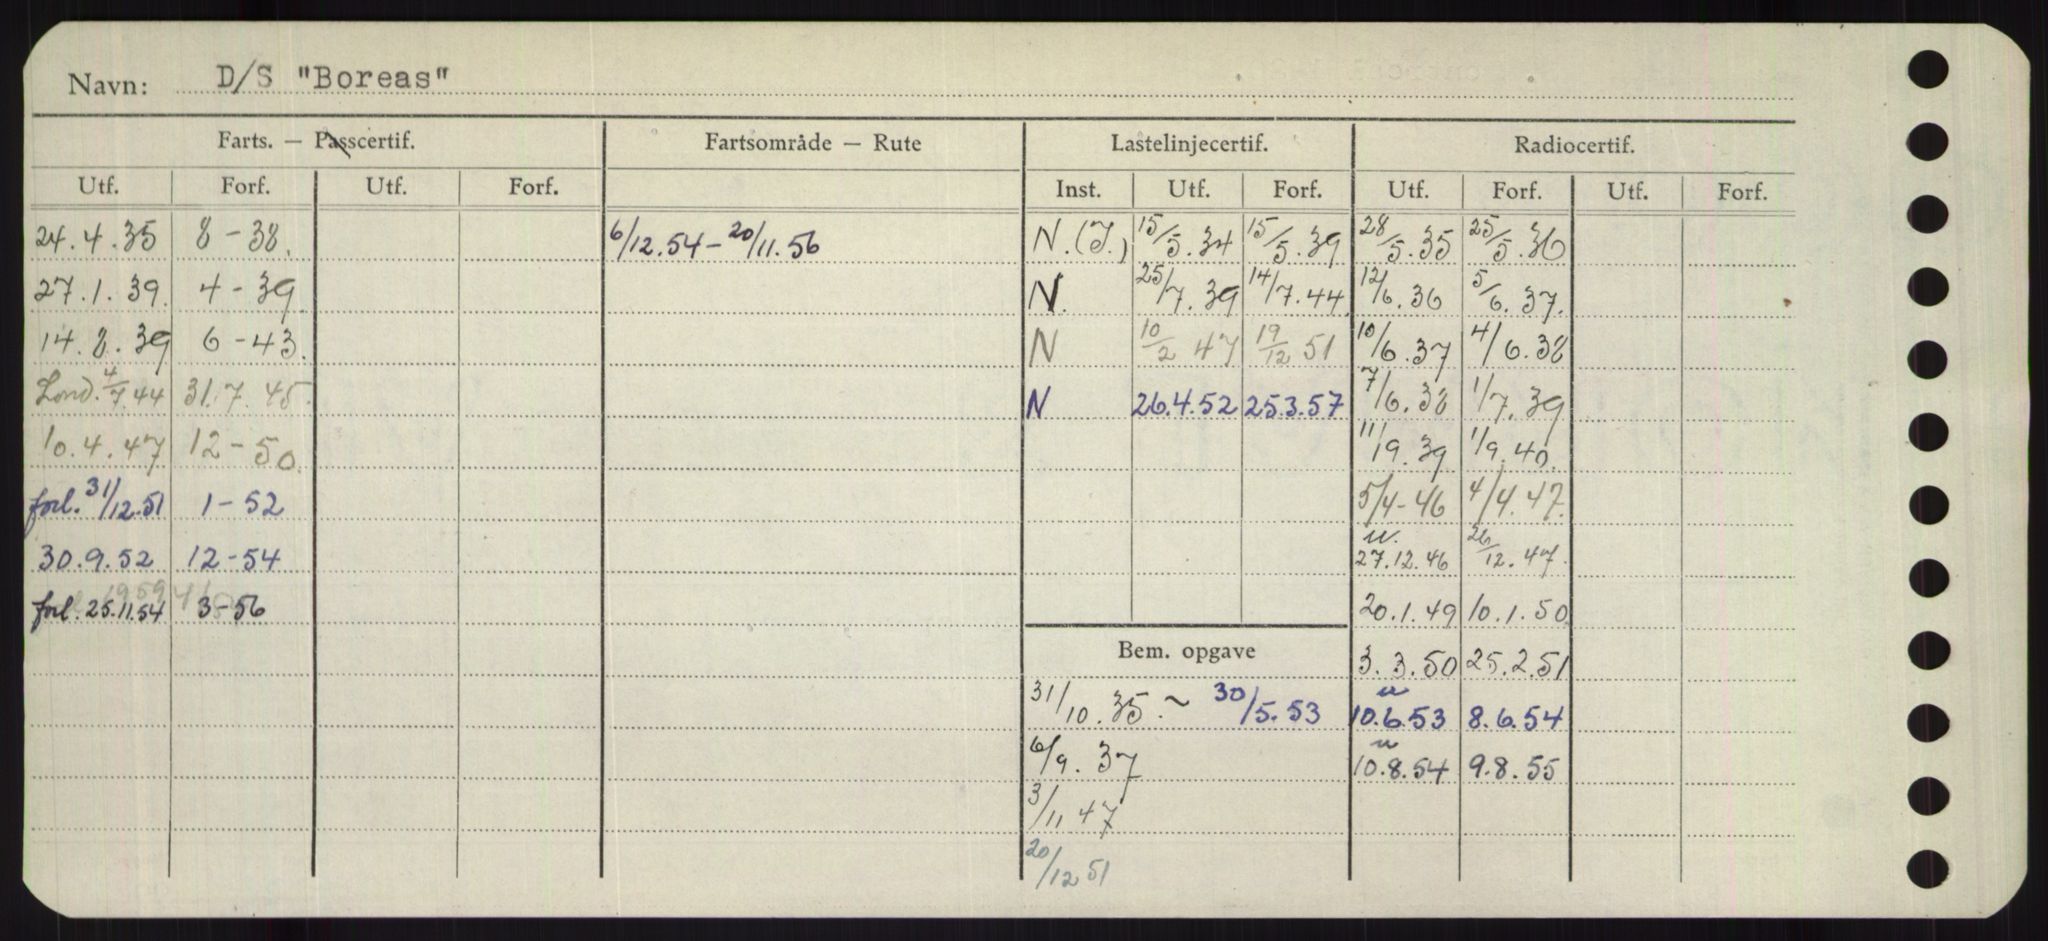 Navn: D/S "Boreas"
Farts. — Passcertif. Fartsområde — Rute Lastelinjecertif. Radiocertif.
Utf. Forf. Utf. Forf. Inst. Utf. Forf. Utf. Forf. Utf. Forf.
24.4.35 8-38. 6/12.54-20/11.56 N.(I.) 15/5.34 15/5.39 28/5.35 25/5.36
27.1.39. 4-39. N. 25/7.39 14/7.44 12/6.36 5/6.37.
14.8.39 6-43. N 10/2 47 19/12 51 10/6.37 4/6.38
Lond. 4/7.44 31.7.45. N 26.4.52 25.3.57 7/6.38 1/7.39
10.4.47 12-50. 11/9.39 1/9.40.
forl. 31/12.51 1-52 5/4-46 4/4.47.
30.9.52 12-54 u. 27.12.46 26/12.47.
forl. 25.11.54 3-56 20.1.49 10.1.50.
Bem. opgave 3.3.50 25.2.51
31/10.35.~ 30/5.53 u 10.6.53 8.6.54
6/9.37 u 10.8.54 9.8.55
3/11 47
20/12 51